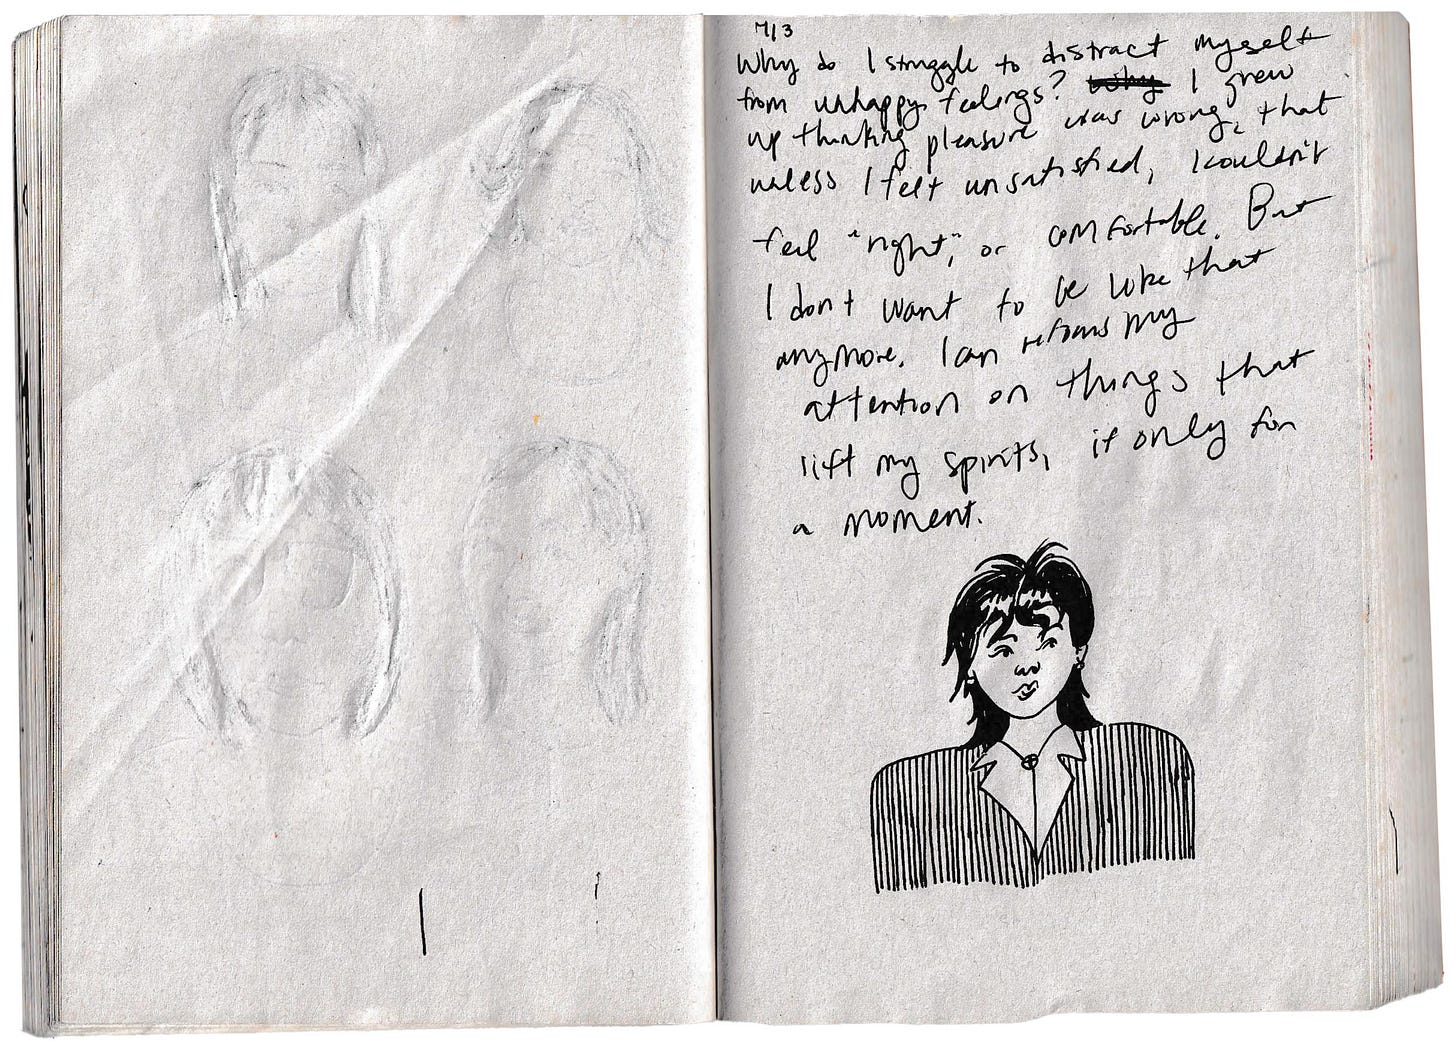 7/3
Why do I struggle to distract myself
from unhappy feelings? Why I grew
up thinking pleasure was wrong, that
unless I felt unsatisfied, I couldn't
feel "right", or comfortable. But
I don't want to be like that
anymore. I can refocus my
attention on things that
lift my spirits, if only for
a moment.